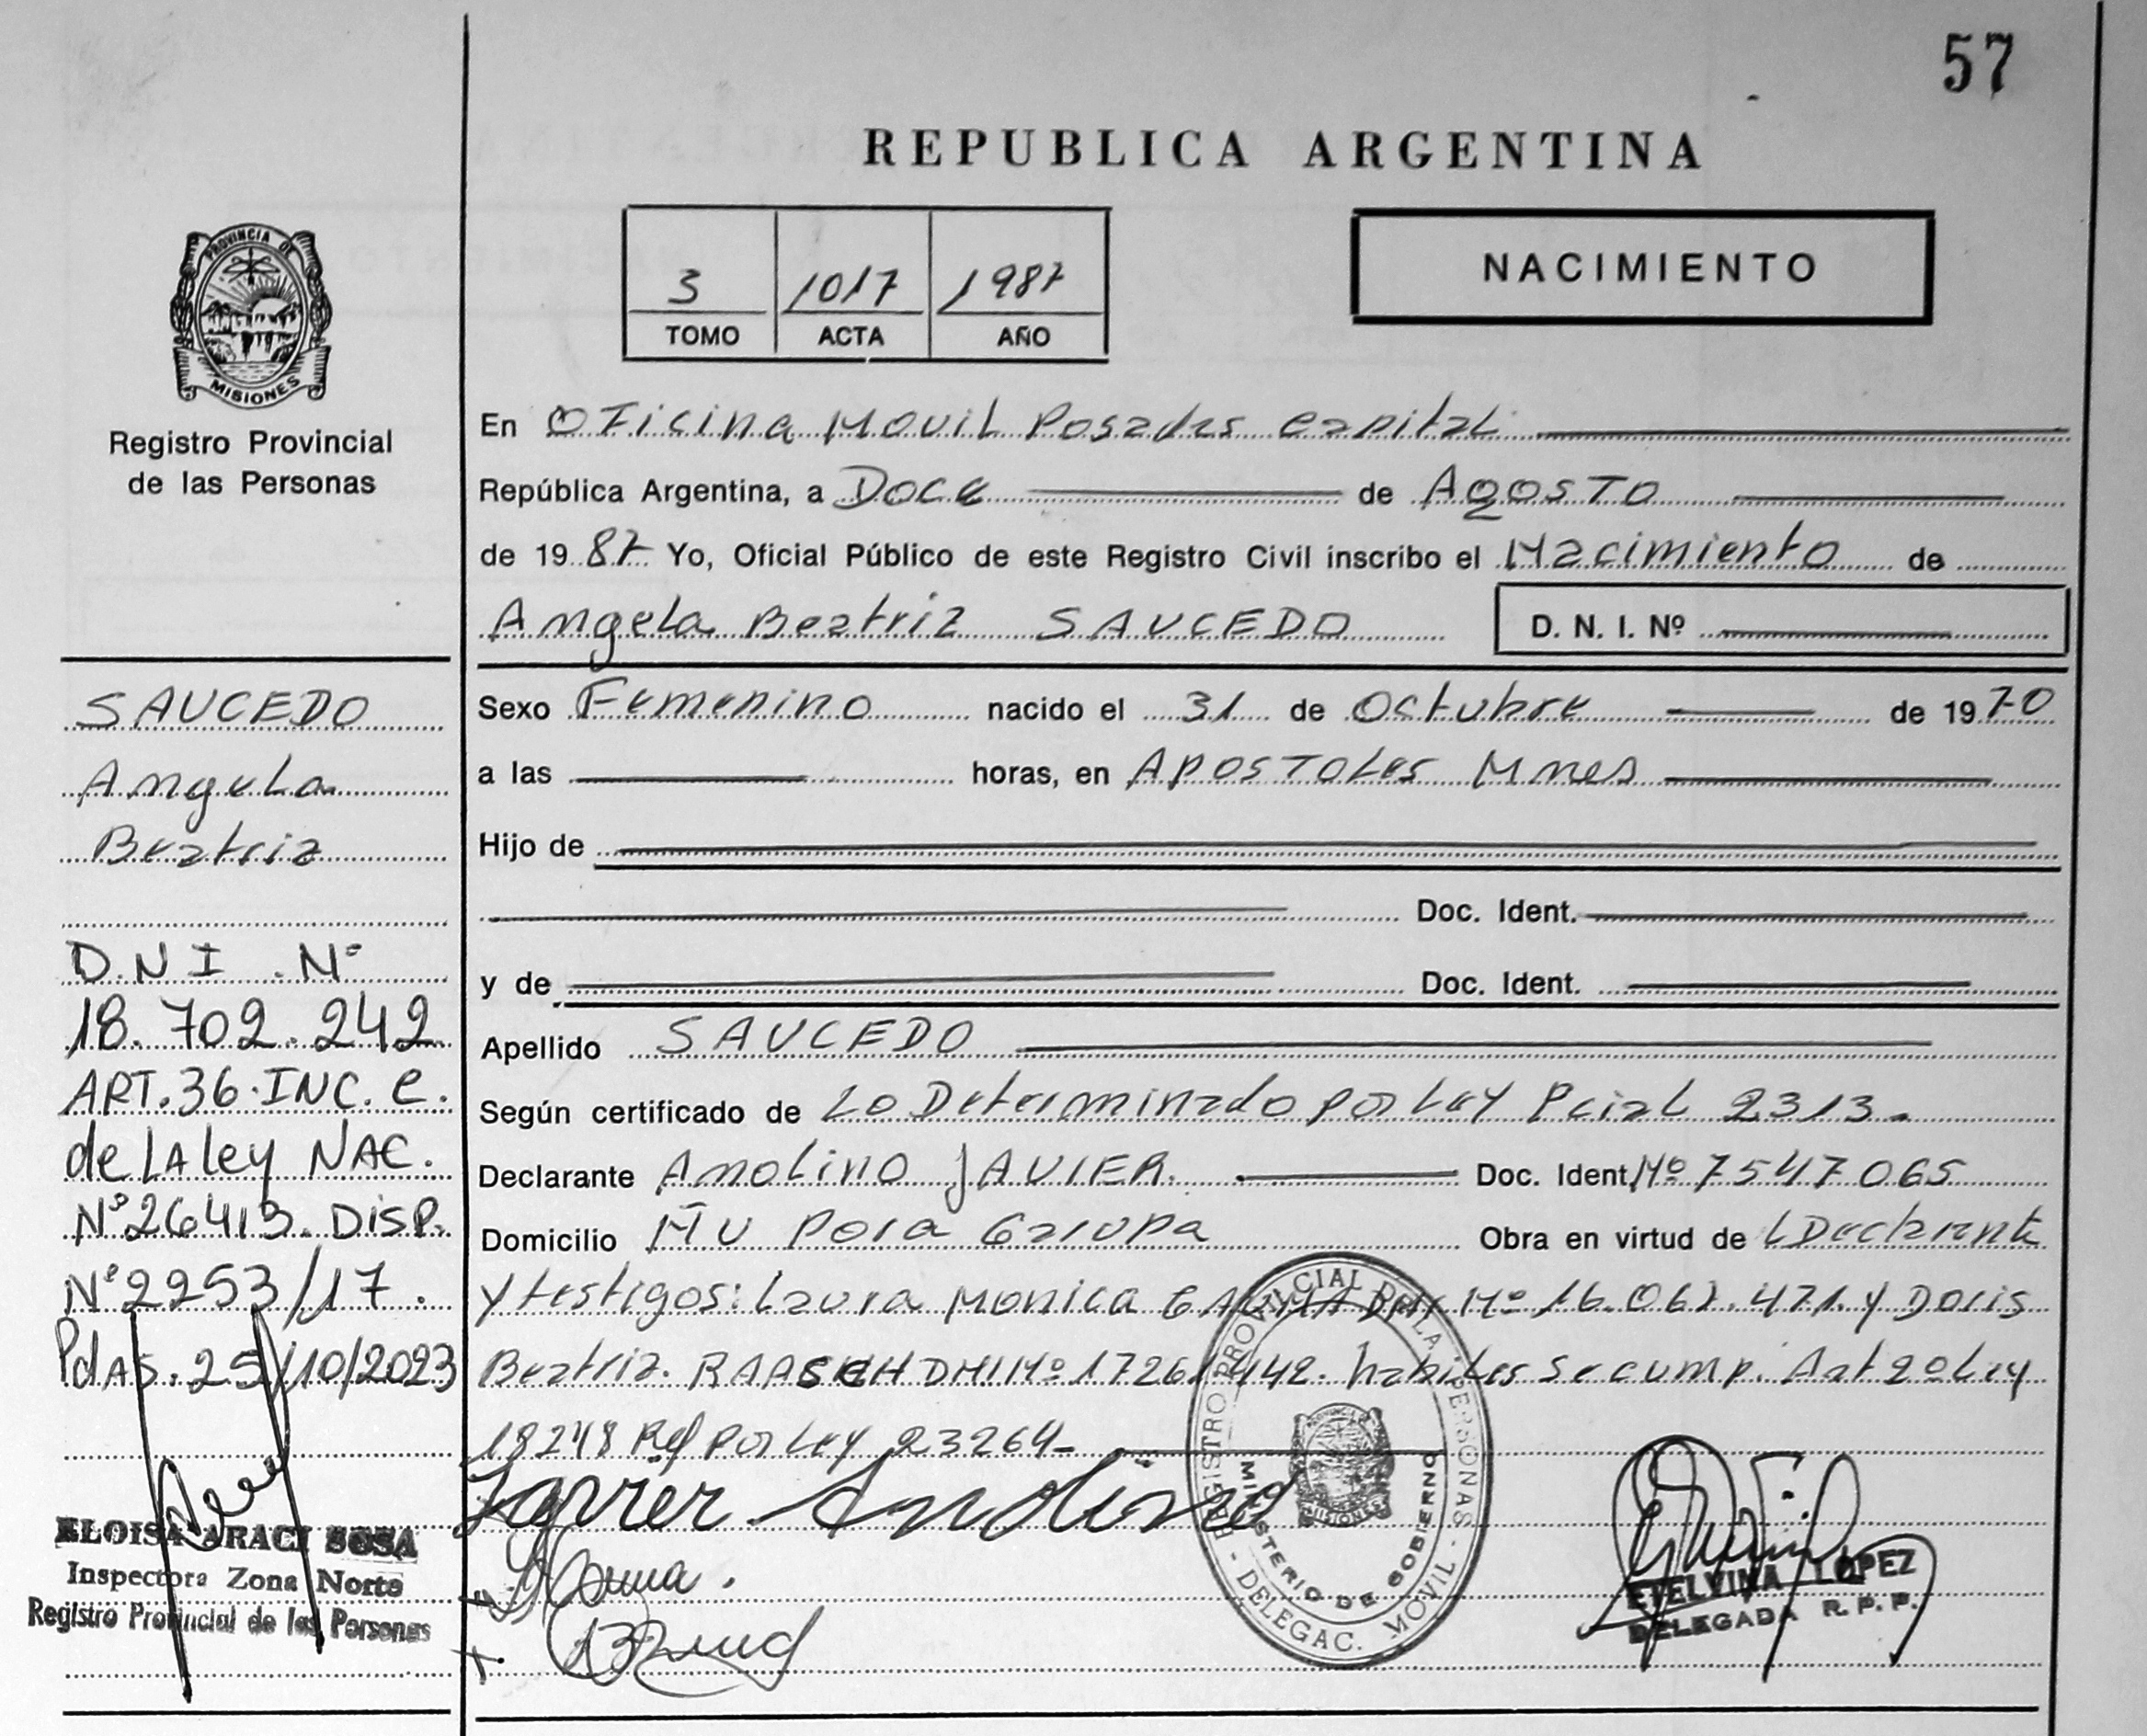 57
REPUBLICA ARGENTINA
3 1017 1987
TOMO ACTA AÑO
NACIMIENTO
PROVINCIA DE
MISIONES
Registro Provincial
de las Personas
SAUCEDO
Angela
Beatriz
D.N.I. Nº
18.702.242
ART.36.INC.C.
de LA ley NAC.
Nº26413. DISP.
Nº2253/17.
Pdas. 25/10/2023
ELOISA ARACI SOSA
Inspectora Zona Norte
Registro Provincial de las Personas
En Oficina Movil Posadas Capital
República Argentina, a Doce de Agosto
de 19 87 Yo, Oficial Público de este Registro Civil inscribo el Nacimiento de
Angela Beatriz SAUCEDO D. N. I. Nº
Sexo Femenino nacido el 31 de Octubre de 19 70
a las horas, en Apostoles Mnes
Hijo de
Doc. Ident.
y de Doc. Ident.
Apellido SAUCEDO
Según certificado de Lo Determinado por Ley Pcial 2313.
Declarante Anolino JAVIER. Doc. Ident. Nº 7547065
Domicilio Ñu Pora Garupa Obra en virtud de L Declarante
y testigos: Laura Monica DNI Nº 16.062.471. y Doris
Beatriz. RAASCH DNI Nº 17261442. habiles se cump. Art 20 Ley
18248 Ref por Ley 23264-
Javier Anolino
REGISTRO PROVINCIAL DE LA PERSONAS
MINISTERIO DE GOBIERNO
DELEGAC. MOVIL
MISIONES
ETELVINA LOPEZ
DELEGADA R. P. P.